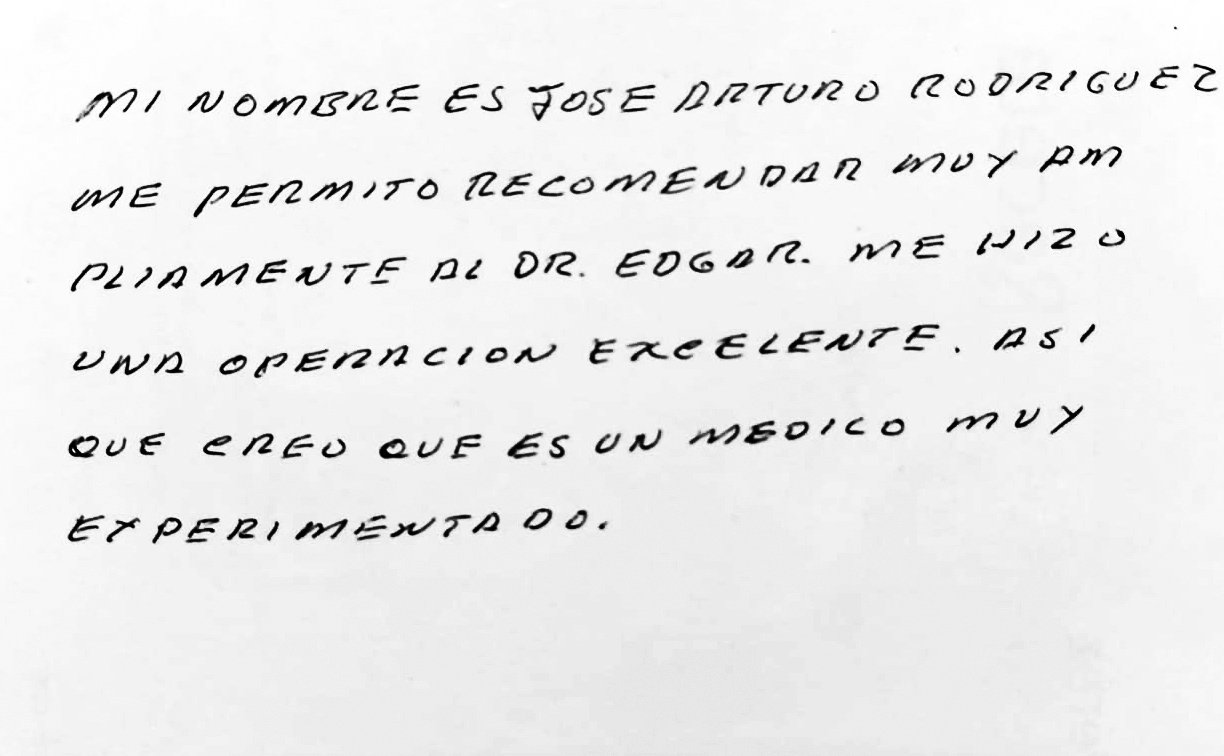 MI NOMBRE ES JOSE ARTURO RODRIGUEZ
ME PERMITO RECOMENDAR MUY AM
PLIAMENTE AL DR. EDGAR. ME HIZO
UNA OPERACION EXCELENTE. ASI
QUE CREO QUE ES UN MEDICO MUY
EXPERIMENTADO.